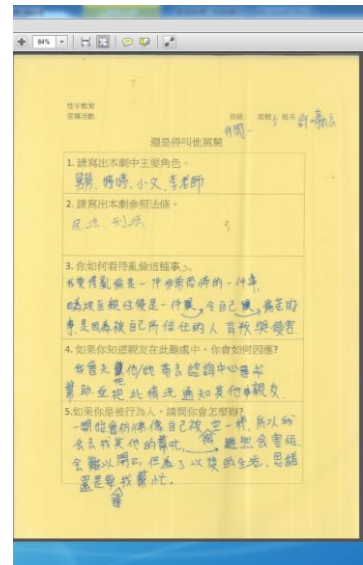 84%
性平教育
宣導活動
班級 座號 姓名
還是得叫他舅舅
1. 請寫出本劇中主要角色。
舅舅、婷婷、小文、李老師
2. 請寫出本劇參照法條。
民法、刑法
3. 你如何看待亂倫這種事
我覺得亂倫是一件非常恐怖的一件事,
因為被至親性侵是一件 令自己 痛苦的
事,是因為被自己所信任的人背叛與侵害
4. 如果你知道親友在此難處中,你會如何因應?
我會先 他/她 去諮詢中心尋求
幫助並把此情況通知其他親友
5.如果你是被行為人,請問你會怎麼辦?
一開始會彷彿像自己被 一樣,所以我
會去找其他的幫忙, 雖然會害怕、
會難以開口,但為了以後的生活、思緒
還是要找幫忙。